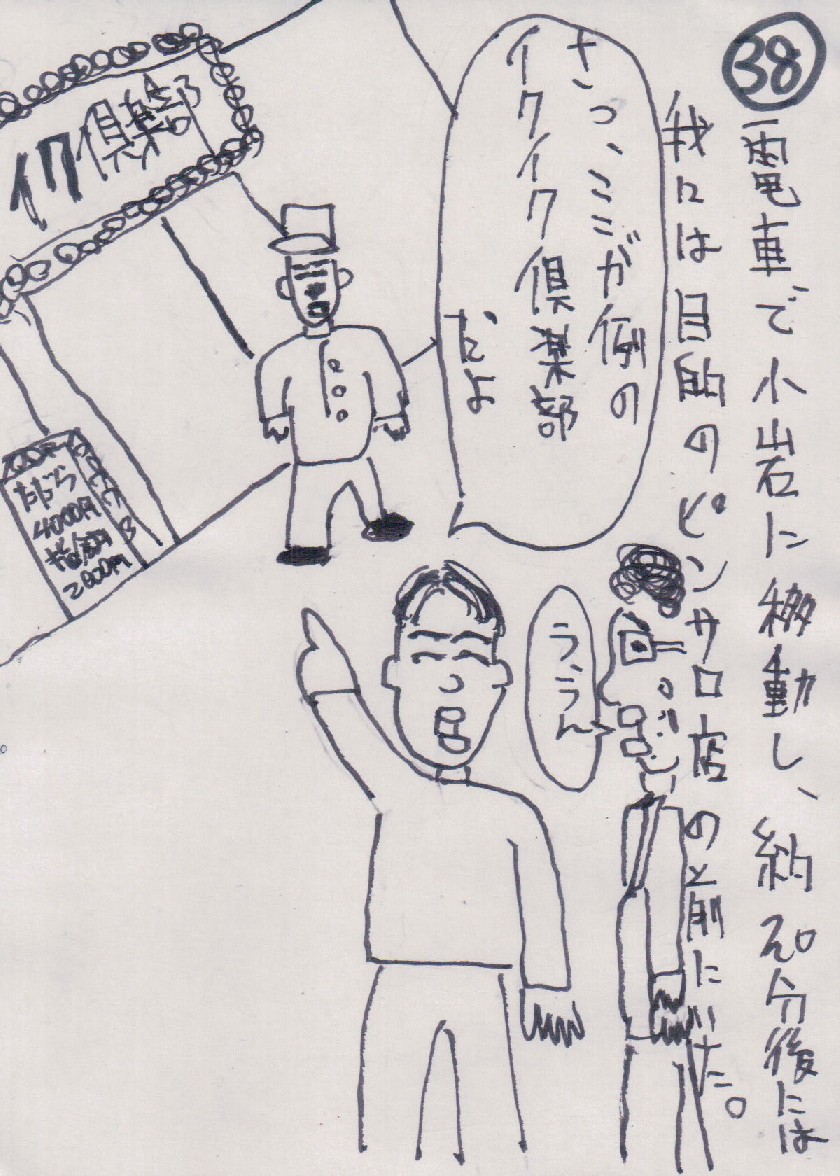 38
電車で小岩に移動し、約20分後には
我々は目的のピンサロ店の前にいた。
さっ、ここが例の
イクイク倶楽部
だよ
う、うん
イク倶楽部
4000円
2000円